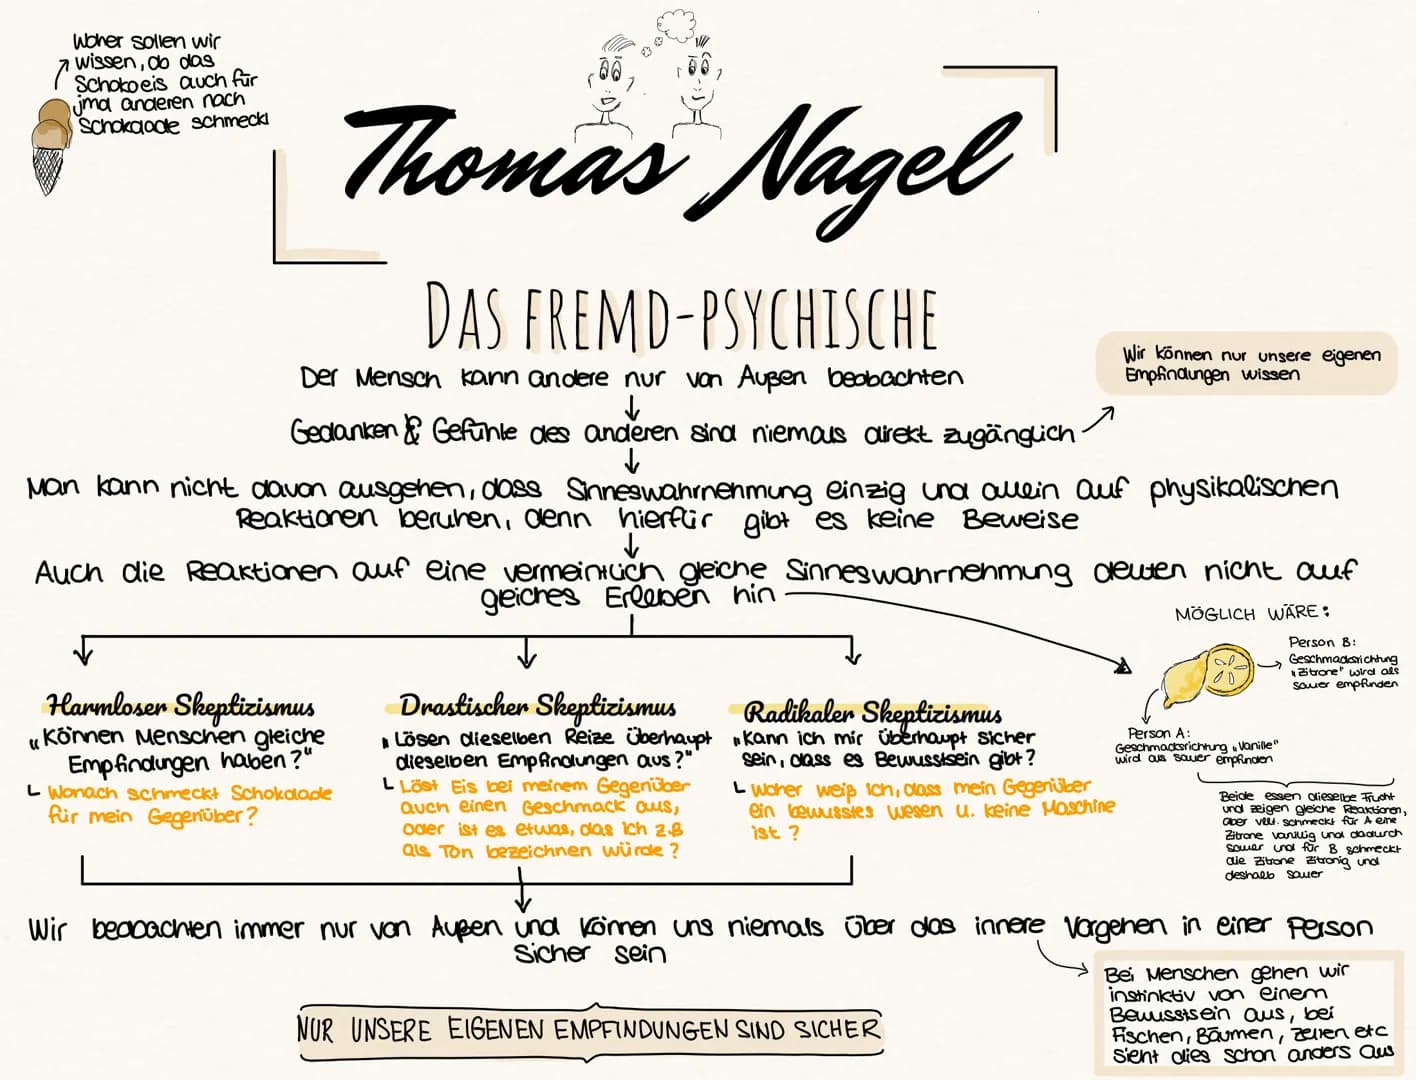 Woher sollen wir
wissen, ob das
Schokoeis auch für
jmd anderen nach
Schokolade schmeckt
Thomas Nagel
DAS FREMD-PSYCHISCHE
Der Mensch kann andere nur von Außen beobachten
Wir können nur unsere eigenen
Empfindungen wissen
Gedanken & Gefühle des anderen sind niemals direkt zugänglich
Man kann nicht davon ausgehen, dass Sinneswahrnehmung einzig und allein auf physikalischen
Reaktionen beruhen, denn hierfür gibt es keine Beweise
Auch die Reaktionen auf eine vermeintlich gleiche Sinneswahrnehmung deuten nicht auf
gleiches Erleben hin
MÖGLICH WÄRE:
Person B:
Geschmacksrichtung
„Zitrone" wird als
sauer empfinden
Person A:
Geschmacksrichtung „Vanille"
wird als sauer empfinden
Beide essen dieselbe Frucht
und zeigen gleiche Reaktionen,
aber vllt. schmeckt für A eine
Zitrone vanillig und dadurch
sauer und für B schmeckt
die Zitrone zitronig und
deshalb sauer
Harmloser Skeptizismus
„Können Menschen gleiche
Empfindungen haben?"
Wonach schmeckt Schokolade
für mein Gegenüber?
Drastischer Skeptizismus
„Lösen dieselben Reize überhaupt
dieselben Empfindungen aus?"
Löst Eis bei meinem Gegenüber
auch einen Geschmack aus,
oder ist es etwas, das ich z.B
als Ton bezeichnen würde?
Radikaler Skeptizismus
„Kann ich mir überhaupt sicher
sein, dass es Bewusstsein gibt?
Woher weiß ich, dass mein Gegenüber
ein bewusstes wesen u. keine Maschine
ist?
Wir beobachten immer nur von Außen und können uns niemals über das innere Vorgehen in einer Person
sicher sein
NUR UNSERE EIGENEN EMPFINDUNGEN SIND SICHER
Bei Menschen gehen wir
instinktiv von einem
Bewusstsein aus, bei
Fischen, Bäumen, Zellen etc
sieht dies schon anders aus